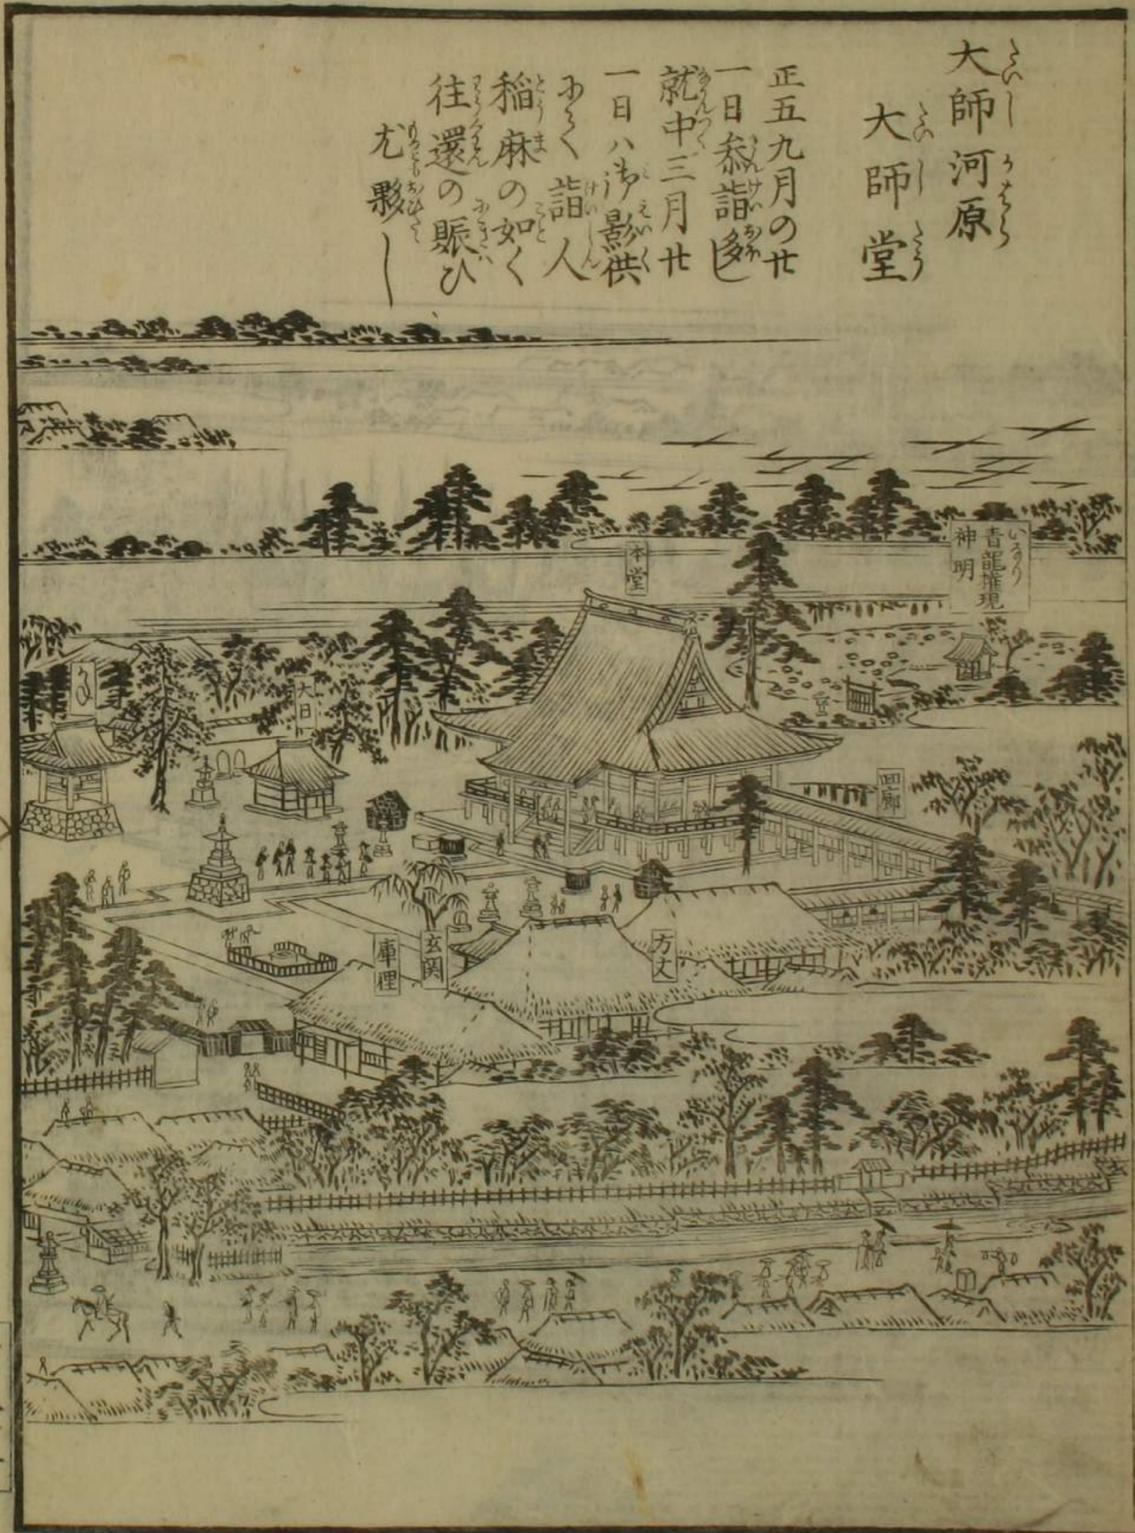 大師河原
大師堂
正五九月の廿
一日参詣多し
就中三月廿
一日ハ御影供
にて詣人
稲麻の如く
往還の賑ひ
尤夥し
本堂
いなり
青龍権現
神明
大日
回廊
方丈
玄関
庫裡